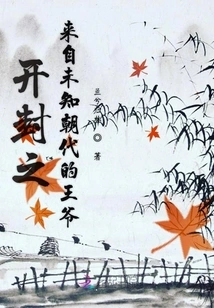 开封之
来自未知朝代的王爷
著